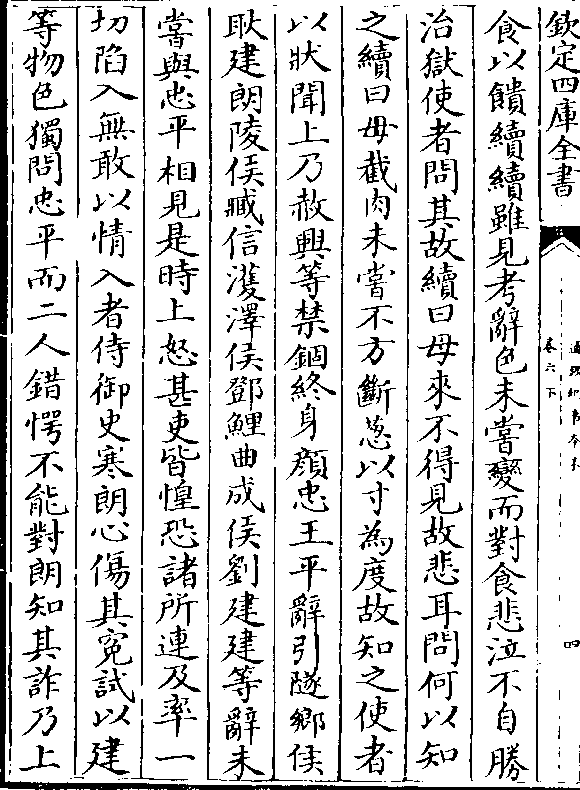 欽定四庫全書
通鑑紀事本末
卷六下
四
食以饋續續雖見考辭色未嘗變而對食悲泣不自勝
治獄使者問其故續曰母來不得見故悲耳問何以知
之續曰母截肉未嘗不方斷葱以寸為度故知之使者
以狀聞上乃赦興等禁錮終身顔忠王平辭引隧鄉侯
耿建朗陵侯臧信濩澤侯鄧鯉曲成侯劉建建等辭未
嘗與忠平相見是時上怒甚吏皆惶恐諸所連及率一
切陷入無敢以情入者侍御史寒朗心傷其寃試以建
等物色獨問忠平而二人錯愕不能對朗知其詐乃上